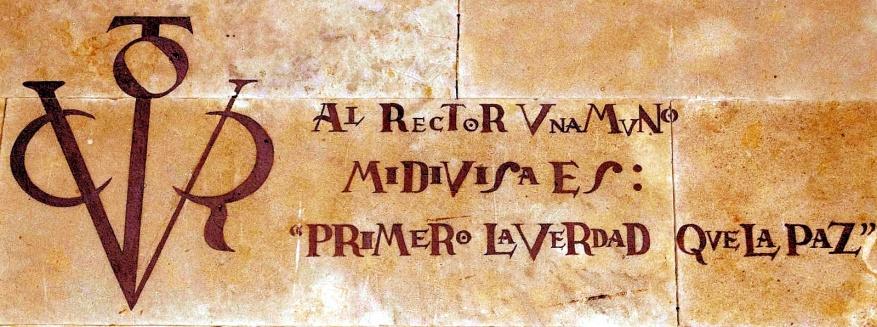 AL RECTOR VNAMVNO
MI DIVISA ES:
"PRIMERO LA VERDAD QVE LA PAZ"